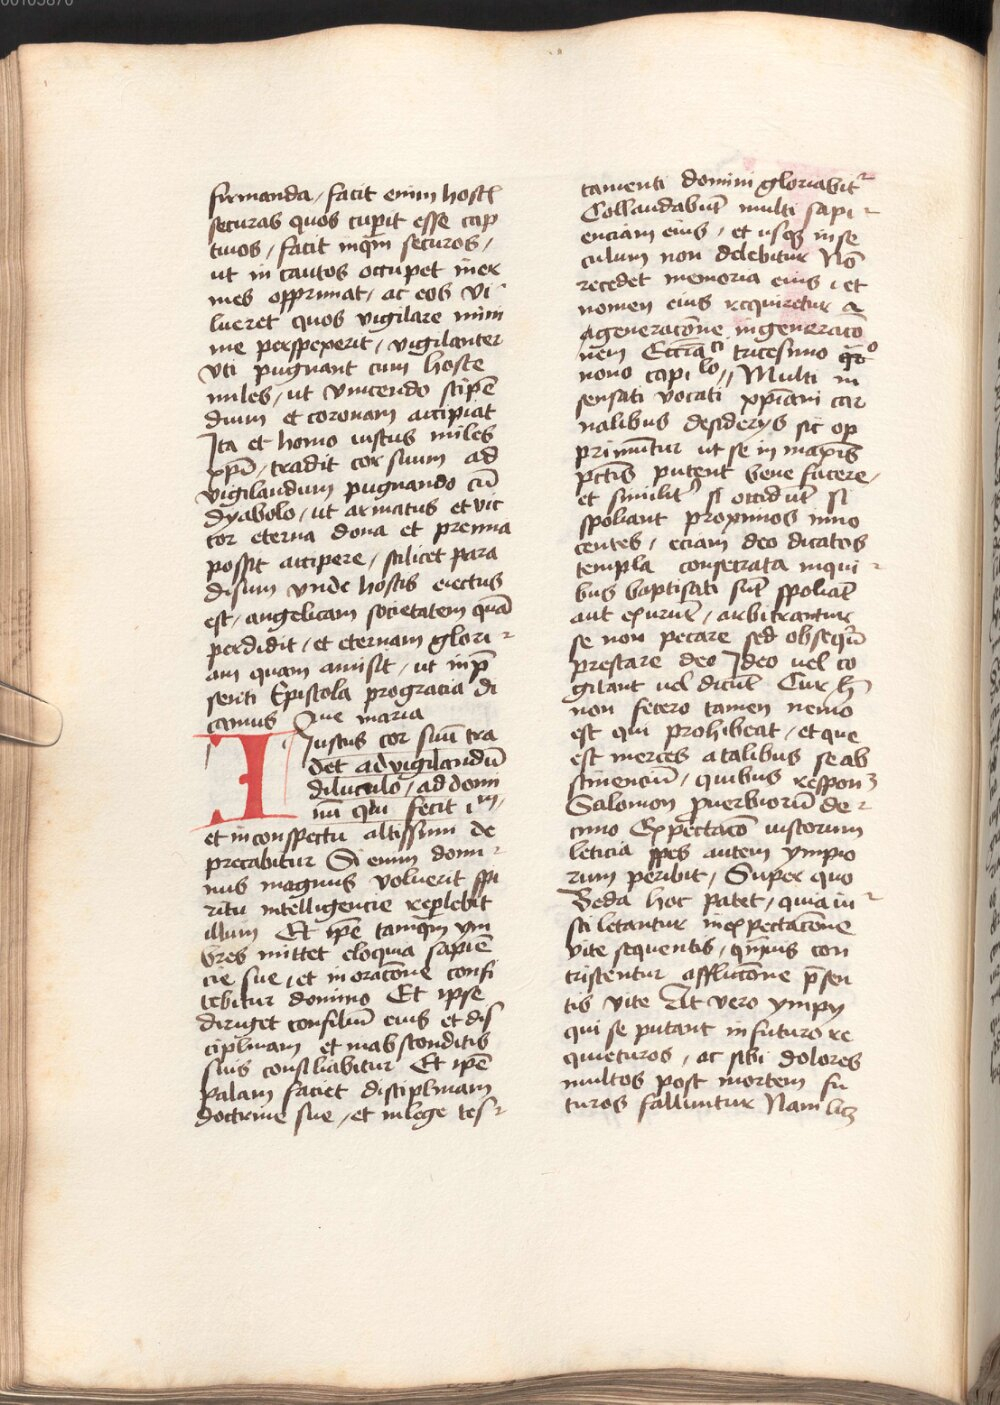 00103870
firmanda / facit enim hostꝭ
securas quos cupit esse cap
tiuos / facit inqm̄ securos /
ut in cautos occupet iner
mes opprimat / ac eos vi
lueret quos vigilare mini
me perspexerit / vigilanter
vti pugnant cum hoste
miles / ut vincendo stipē
dium et coronam accipiat
Ita et homo iustus miles
xp̄i / tradit cor suum ad
vigilandum pugnando cū
dyabolo / ut armatus et vic
tor eterna dona et premia
possit accipere / scilicet para
disum vnde hostis eiectus
est / angelicam societatem quā
perdidit / et eternam glori
am quam amisit / ut in p̄
senti Epistola pro gracia di
camus Que maria
Iustus cor suū tra
det ad vigilandū
diluculo / ad domi
nū qui fecit im̄ /
et in conspectu altissimi de
precabitur Si enim domi
nus magnus voluerit spi
ritu intelligencie replebit
illum Et ip̄e tamqm̄ ym
bres mittet eloquia sapiē
cie sue / et in oracōne confi
tebitur domino Et ipse
diriget consiliū eius et dis
ciplinam et in absconditis
suis consiliabitur Et ip̄e
palam faciet disciplinam
doctrine sue / et in lege tes
tamenti domini gloriabit᷑
Collaudabūt multi sapi
enciam eius / et usqꝫ in se
culum non delebitur Nō
recedet memoria eius / et
nomen eius requiretur a
a generacōne in generacō
nem Eccīa ci tricesimo qrto
nono capilo // Multi in
sensati vocati xpīani car
nalibus desiderys sic op
primūtur ut se in maxīs
pctīs putent bene facere /
et similit᷑ si occidūt si
spoliant proximos inno
centes / eciam deo dicatos
templa consecrata in qui
bus baptisati sūt spoliāt
aut exurūt / arbitrantur
se non peccare sed obsequiū
prestare deo Ideo uel co
gitant uel dicūt Cur h̄
non fecero tamen nemo
est qui prohibeat / et que
est merces a talibus se ab
stinenciū / quibus respon
Salomon puerbiorū de
cimo Expectacō iustorum
leticia spes autem ympio
rum peribit / Super quo
Beda hoc patet / quia iu
sti letantur in expectacōne
vite sequentis / quīuis con
tristentur afflictōne p̄sen
tis vite At vero ympy
qui se putant in futuro re
quieturos / ac sibi dolores
multos post mortem fu
turos falluntur Nam licꝫ